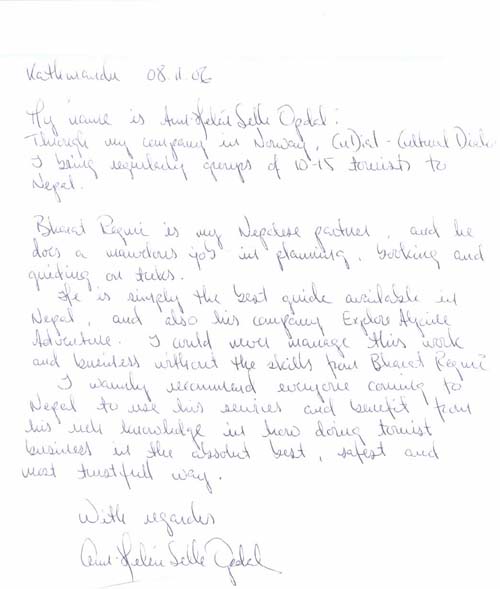 Kathmandu 08.11.06
My name is Anne-Helén Selle Opdal.
Through my company in Norway, CulDial - Cultural Dialo
I bring regularly groups of 10-15 tourists to
Nepal.
Bharat Regmi is my Nepalese partner, and he
does a marvelous job in planning, booking and
guiding on treks.
He is simply the best guide available in
Nepal, and also his company Explore Alpine
Adventure. I could never manage this work
and business without the skills from Bharat Regmi
I warmly recommend everyone coming to
Nepal to use his services and benefit from
his rich knowledge in how doing tourist
business in the absolut best, safest and
most trustfull way.
With regards
Anne-Helén Selle Opdal